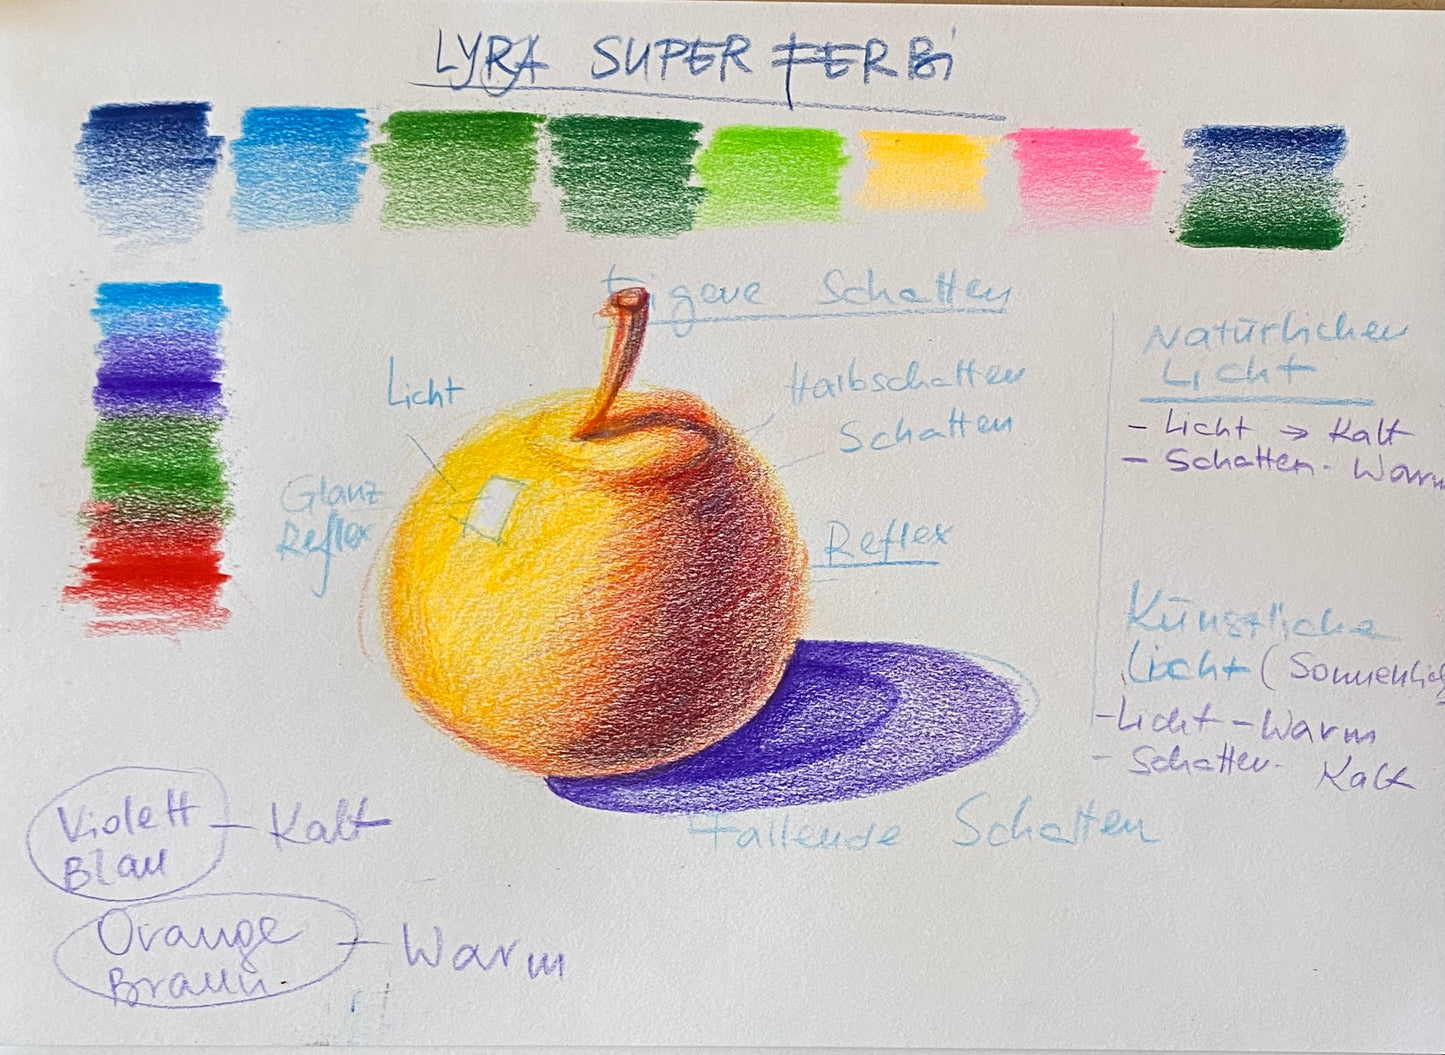 LYRA SUPER FERBi
Eigene Schatten
Licht
Halbschatten
Schatten
Glanz
Reflex
Reflex
Natürlicher
Licht
- Licht → Kalt
- Schatten - Warm
Künstliche
Licht (Sonnenlic
- Licht - Warm
- Schatten - Kalt
Fallende Schatten
Violett
Blau
- Kalt
Orange
Braun.
- Warm